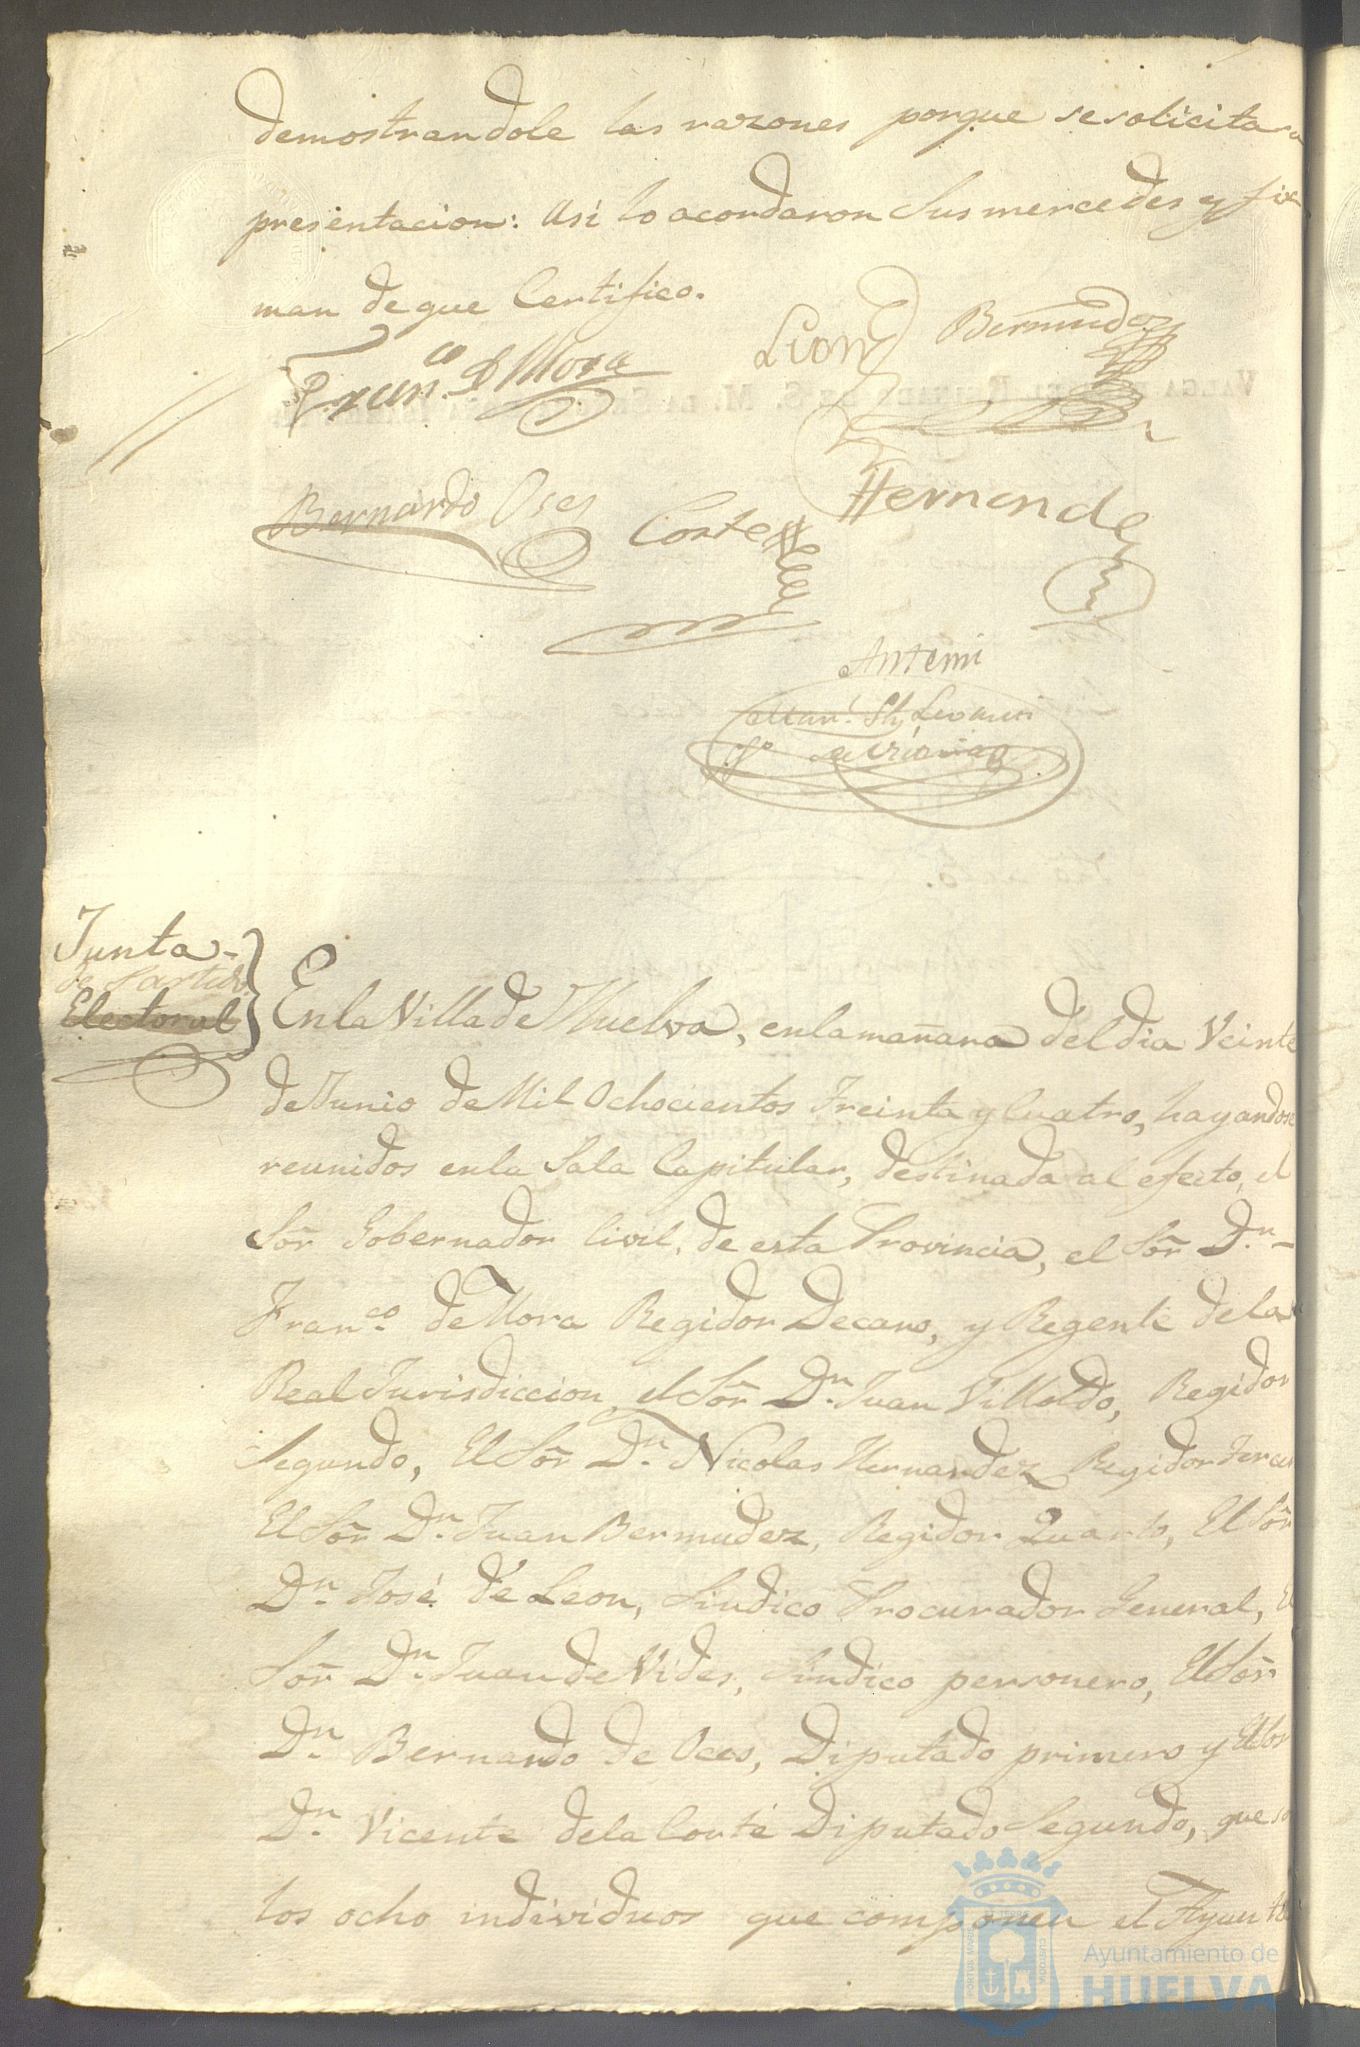 demostrandole las razones porque se solicita
presentacion: Asi lo acordaron Sus mercedes y fir
man de que Certifico.
Fran.co D Mora
Leon
Bermudez
VALGA PARA EL REINADO DE S. M. LA SEÑORA
Bernardo Oses
Corte
Hernande
Antemi
Junta
de Partido
Electoral
En la Villa de Huelva, en la mañana del dia Veinte
de Junio de Mil Ochocientos Treinta y Cuatro, hayandose
reunidos en la Sala Capitular, destinada al efecto, el
Sõr Gobernador Civil, de esta Provincia, el Sõr D.n
Fran.co de Mora Regidor Decano, y Regente de la
Real Jurisdiccion, el Sõr D.n Juan Villoldo, Regidor
Segundo, El Sõr D.n Nicolas Hernandez Regidor Terce
El Sõr D.n Juan Bermudez, Regidor Quarto, El Sõr
D.n José de Leon, Sindico Procurador General, El
Sõr D.n Juan de Vides, Sindico personero, El Sõr
D.n Bernardo de Oces, Diputado primero y El Sor
D.n Vicente de la Corte Diputado Segundo, que so
los ocho individuos que componen el Ayunta
Ayuntamiento de
HUELVA